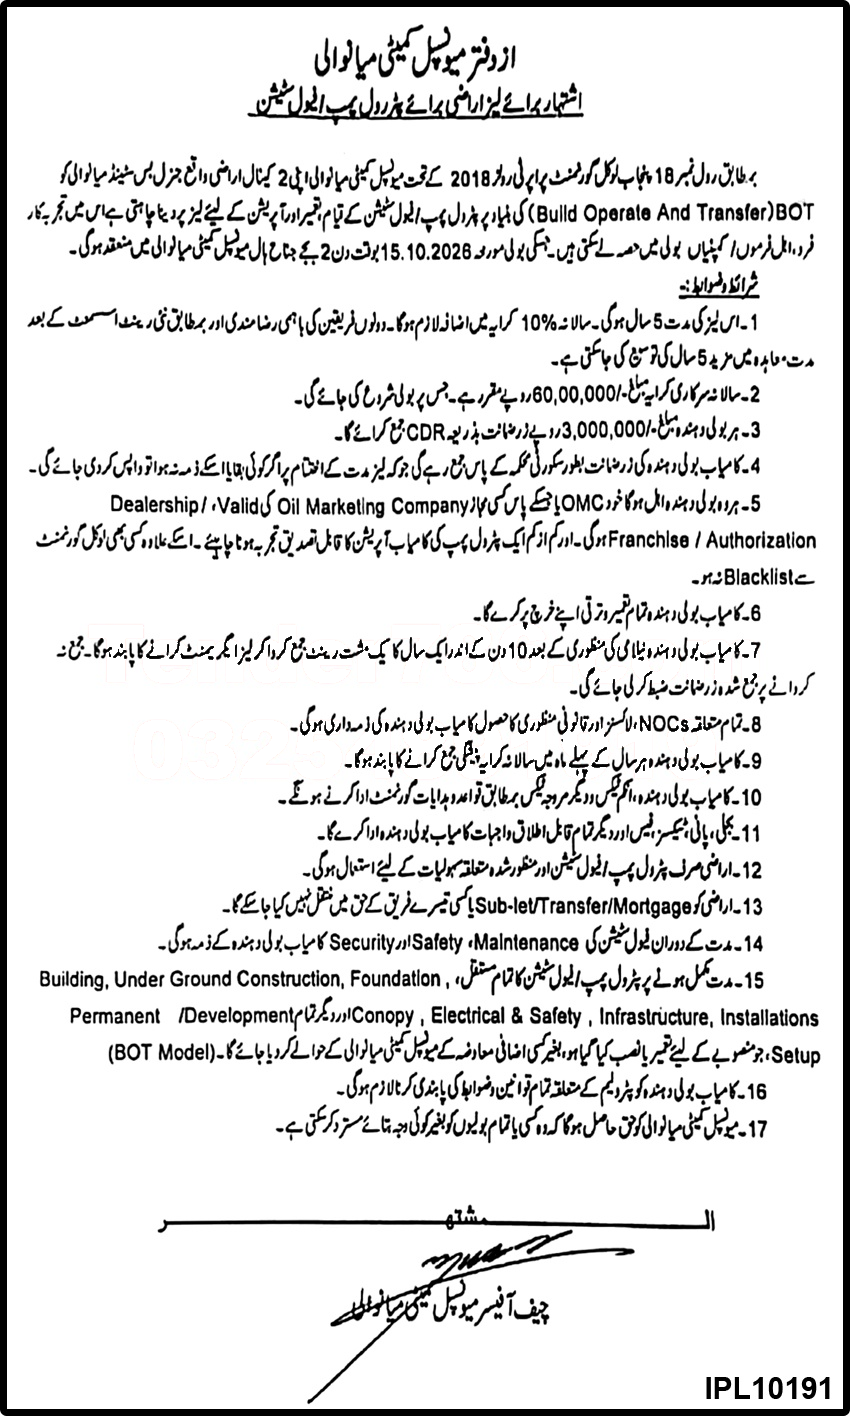 از دفتر میونسپل کمیٹی میانوالی
اشتہار برائے لیز اراضی برائے پٹرول پمپ/فیول سٹیشن
بمطابق رول نمبر 18 پنجاب لوکل گورنمنٹ پراپرٹی رولز 2018 کے تحت میونسپل کمیٹی میانوالی اپنی 2 کینال اراضی واقع جنرل بس سٹینڈ میانوالی کو
BOT(Build Operate And Transfer) کی بنیاد پر پٹرول پمپ/فیول سٹیشن کے قیام، تعمیر اور آپریشن کے لیئے لیز پر دینا چاہتی ہے اس میں تجربہ کار
فرد، اہل فرموں/ کمپنیاں بولی میں حصہ لے سکتی ہیں۔ جسکی بولی مورخہ 15.10.2026 بوقت دن 2 بجے جناح ہال میونسپل کمیٹی میانوالی میں منعقد ہوگی۔
شرائط و ضوابط:-
1۔ اس لیز کی مدت 5 سال ہوگی۔ سالانہ 10% کرایہ میں اضافہ لازم ہوگا۔ دونوں فریقین کی باہمی رضامندی اور بمطابق نئی رینٹ اسسمنٹ کے بعد
مدت معاہدہ میں مزید 5 سال کی توسیع کی جاسکتی ہے۔
2۔ سالانہ سرکاری کرایہ مبلغ -/60,00,000 روپے مقرر ہے۔ جس پر بولی شروع کی جائے گی۔
3۔ ہر بولی دہندہ مبلغ -/3,000,000 روپے زر ضمانت بذریعہ CDR جمع کرائے گا۔
4۔ کامیاب بولی دہندہ کی زر ضمانت بطور سکورٹی محکمہ کے پاس جمع رہے گی جو کہ لیز مدت کے اختتام پر اگر کوئی بقایا اسکے ذمہ نہ ہوا تو واپس کر دی جائے گی۔
5۔ ہر وہ بولی دہندہ اہل ہوگا خود OMC یا جسکے پاس کسی مجاز Oil Marketing Company کی Valid، Dealership/
Franchise / Authorization ہوگی۔ اور کم از کم ایک پٹرول پمپ کی کامیاب آپریشن کا قابل تصدیق تجربہ ہونا چاہیئے۔ اسکے علاوہ کسی بھی لوکل گورنمنٹ
سے Blacklist نہ ہو۔
6۔ کامیاب بولی دہندہ تمام تعمیر و ترقی اپنے خرچ پر کرے گا۔
7۔ کامیاب بولی دہندہ نیلامی کی منظوری کے بعد 10 دن کے اندر ایک سال کا یک مشت رینٹ جمع کروا کر لیز ایگریمنٹ کرانے کا پابند ہوگا۔ جمع نہ
کروانے پر جمع شدہ زر ضمانت ضبط کر لی جائے گی۔
8۔ تمام متعلقہ NOCs، لائسنز اور قانونی منظوری کا حصول کامیاب بولی دہندہ کی ذمہ داری ہوگی۔
9۔ کامیاب بولی دہندہ ہر سال کے پہلے ماہ میں سالانہ کرایہ پیشگی جمع کرانے کا پابند ہوگا۔
10۔ کامیاب بولی دہندہ، انکم ٹیکس و دیگر مروجہ ٹیکس بمطابق قواعد و ہدایات گورنمنٹ ادا کرنے ہونگے۔
11۔ بجلی، پانی، ٹیکسز، فیس اور دیگر تمام قابل اطلاق واجبات کامیاب بولی دہندہ ادا کرے گا۔
12۔ اراضی صرف پٹرول پمپ/فیول سٹیشن اور منظور شدہ متعلقہ سہولیات کے لیئے استعمال ہوگی۔
13۔ اراضی کو Sub-let/Transfer/Mortgage یا کسی تیسرے فریق کے حق میں منتقل نہیں کیا جاسکے گا۔
14۔ مدت کے دوران فیول سٹیشن کی Maintenance، Safety اور Security کامیاب بولی دہندہ کے ذمہ ہوگی۔
15۔ مدت مکمل ہونے پر پٹرول پمپ/فیول سٹیشن کا تمام مستقل، Building, Under Ground Construction, Foundation ,
Conopy , Electrical & Safety , Infrastructure, Installations اور دیگر تمام Permanent /Development
Setup، جو منصوبے کے لیئے تعمیر یا نصب کیا گیا ہو، بغیر کسی اضافی معاوضہ کے میونسپل کمیٹی میانوالی کے حوالے کر دیا جائے گا۔ (BOT Model)
16۔ کامیاب بولی دہندہ کو پٹرولیم کے متعلقہ تمام قوانین و ضوابط کی پابندی کرنا لازم ہوگی۔
17۔ میونسپل کمیٹی میانوالی کو حق حاصل ہوگا کہ وہ کسی یا تمام بولیوں کو بغیر کوئی وجہ بتائے مسترد کر سکتی ہے۔
المشتہر
چیف آفیسر میونسپل کمیٹی میانوالی
IPL10191